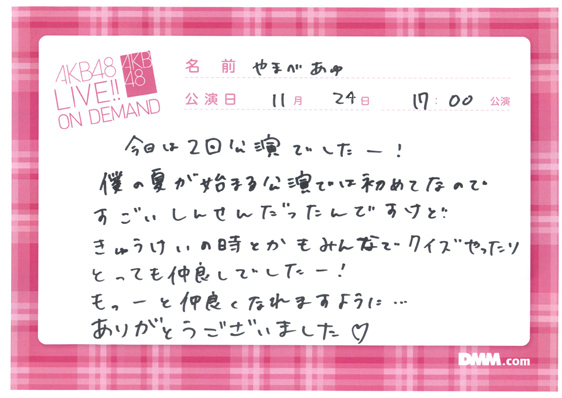 AKB48
LIVE!!
ON DEMAND
AKB
48
名前 やまべあゆ
公演日 11月 24日 17:00 公演
今日は2回公演でしたー!
僕の夏が始まる公演では初めてなので
すごいしんせんだったんですけど
きゅうけいの時とかもみんなでクイズやったり
とっても仲良しでしたー!
もっーと仲良くなれますように…
ありがとうございました♡
DMM.com